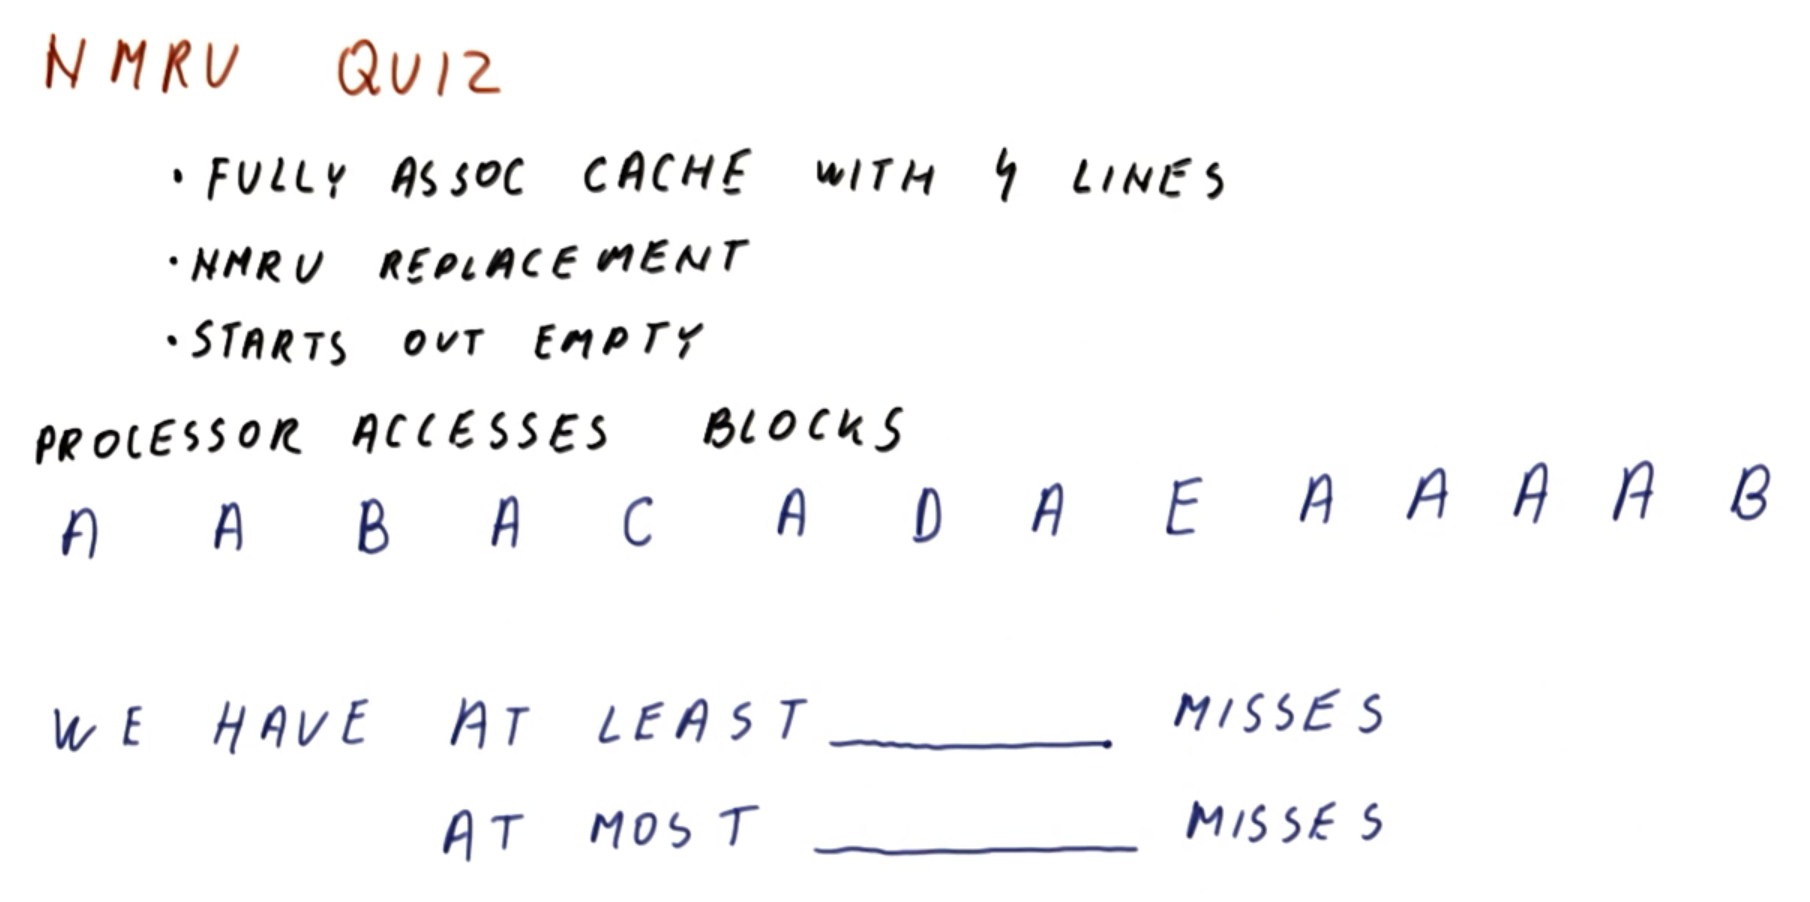 NMRU QUIZ
• FULLY ASSOC CACHE WITH 4 LINES
• NMRU REPLACEMENT
• STARTS OUT EMPTY
PROCESSOR ACCESSES BLOCKS
A A B A C A D A E A A A A B
WE HAVE AT LEAST ______ MISSES
AT MOST ______ MISSES